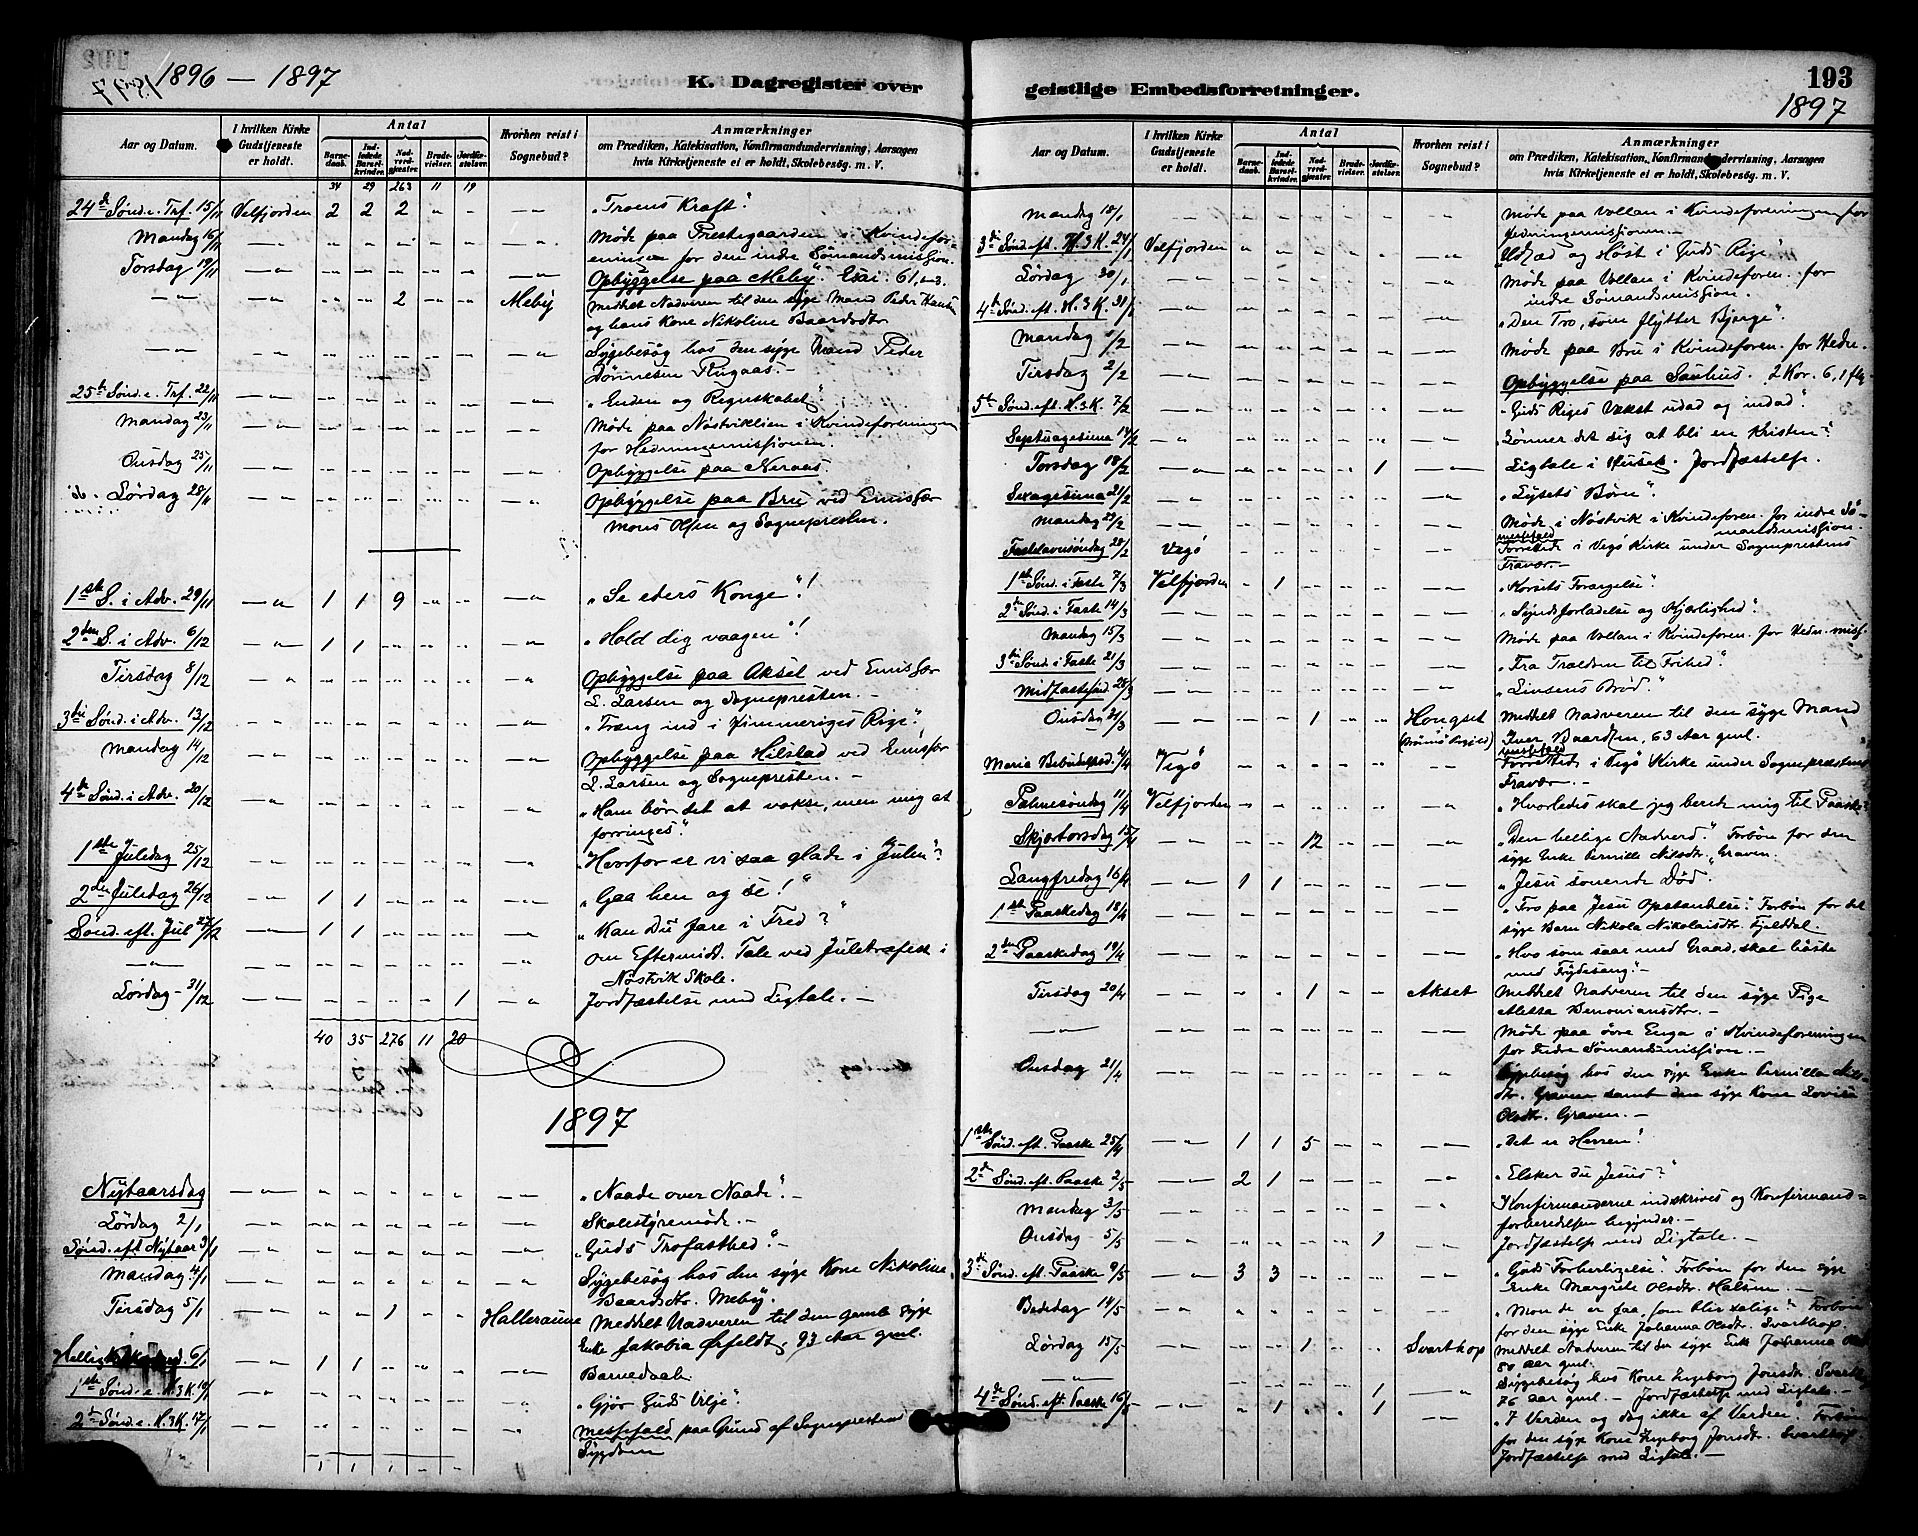 1896 – 1897
K. Dagregister over
Aar og Datum. I hvilken Kirke Gudstjeneste er holdt. Antal Barnedaab. Indledede Barselkvinder. Nadverdgjæster. Brudevielser. Jordfæstelser. Hvorhen reist i Sognebud? Anmærkninger
om Prædiken, Katekisation, Konfirmandundervisning, Aarsagen
hvis Kirketjeneste ei er holdt, Skolebesøg. m. V.
34 29 263 11 19
24de Sønd. e. Tref. 15/11 Velfjorden 2 2 2 „ „ – „ „Troens Kraft“.
Mandag 16/11 Møde paa Prestegaarden i Kvindefor-
eningen for den indre Sømandsmission.
Torsdag 19/11 Opbyggelse paa Meby. Esai. 61,1-3.
– „ – 2 Meby Meddelt Nadveren til den syge Mand Peder Hansen
og hans Kone Nikoline Baardsdtr.
Sygebesøg hos den syge Mand Peder
25de Sønd. e. Tref. 22/11 „Enden og Regnskabet“.
Mandag 23/11 Møde paa Nøstviklien i Kvindeforeningen
for Hedningemissionen.
Onsdag 25/11 Opbyggelse paa Nernes.
Lørdag 28/11 Opbyggelse paa Bru ved Emissær
Mons Olsen og Sognepresten.
1ste S. i Adv. 29/11 1 1 9 „Se eders Konge“!
2den S. i Adv. 6/12 1 1 „Hold dig vaagen“!
Tirsdag 8/12 Opbyggelse paa Aksel ved Emissær
L. Larsen og Sognepresten. –
3die Sønd. i Adv. 13/12 „Træng ind i Himmeriges Rige“.
Mandag 14/12 Opbyggelse paa Hilstad ved Emissær
L. Larsen og Sognepresten. –
4de Sønd. i Adv. 20/12 „Ham bør det at vokse, men mig at
forringes“.
1ste Juledag 25/12 „Hvorfor er vi saa glade i Julen“?
2den Juledag 26/12 1 1 „Gaa hen og se!“
Sønd. eft. Jul 27/12 1 1 „Kan Du fare i Fred?“
– „ – om Eftermidt. Tale ved Juletræfest i
Nøstvik Skole.
Lørdag 31/12 1 Jordfæstelse med Ligtale. –
40 35 276 11 20
1897
Nytaarsdag „Naade over Naade“. –
Lørdag 2/1 Skolestyremøde. –
Sønd. eft. Nytaar 3/1 „Guds Trofasthed“. –
Mandag 4/1 Sygebesøg hos den syge Kone Nikoline
Baardsdtr. Meby.
Tirsdag 5/1 1 Halleraune Meddelt Nadveren til den gamle syge
Enke Jakobia Ørfeldt, 93 Aar gml.
6/1 1 1 Barnedaab.
1ste Sønd. e. H.3.K. 10/1 „Gjør Guds Vilje“.
2den Sønd. e. H.3.K. 17/1 Messefald paa Grund af Sogneprestens
Sygdom
1 1 1
geistlige Embedsforretninger.
193
1897
Aar og Datum. I hvilken Kirke Gudstjeneste er holdt. Antal Barnedaab. Indledede Barselkvinder. Nadverdgjæster. Brudevielser. Jordfæstelser. Hvorhen reist i Sognebud? Anmærkninger
om Prædiken, Katekisation, Konfirmandundervisning, Aarsagen
hvis Kirketjeneste ei er holdt, Skolebesøg. m. V.
Mandag 18/1 Møde paa Vollan i Kvindeforeningen for
Hedningemissionen. –
3die Sønd. eft. H.3.K. 24/1 Velfjorden „Udsæd og Høst i Guds Rige“
Lørdag 30/1 Møde paa Vollan i Kvindeforen. for
indre Sømandsmission.
4de Sønd. eft. H.3.K. 31/1 „Den Tro, som flytter Bjerge“.
Mandag 1/2 Møde paa Bru i Kvindeforen. for Hedn.
Tirsdag 2/2 Opbyggelse paa Sauhus. 2 Kor. 6,1 flg
5te Sønd. eft. H.3.K. 7/2 „Guds Riges Vækst udad og indad“.
Septuagesima 14/2 „Lønner det sig at bli en Kristen“?
Torsdag 18/2 1 Ligtale i Huset. Jordfæstelse.
Sexagesima 21/2 „Lysets Børn“.
Mandag 22/2 Møde i Nøstvik i Kvindeforen. for indre Sø-
mandsmission.
Fastelavnssøndag 28/2 Vegø Messefald i Vegø Kirke under Sogneprestens
Fravær. –
1ste Sønd. i Faste 7/3 Velfjorden 1 „Korsets Forargelse“.
2den Sønd. i Faste 14/3 „Syndsforladelse og Kjærlighed“.
Mandag 15/3 Møde paa Vollan i Kvindeforen. for Hedn. miss.
3die Sønd. i Faste 21/3 „Fra Trældom til Frihed“.
Midfastesønd. 28/3 „Livsens Brød.“
Onsdag 31/3 1 Hongset Meddelt Nadveren til den syge Mand
Iver Baardsen, 63 Aar gml.
Maria Bebudelsesd. 4/4 Vegø Messefald i Vegø Kirke under Sogneprestens
Fravær. –
Palmesøndag 11/4 Velfjorden „Hvorledes skal jeg berede mig til Paaske?
Skjærtorsdag 15/4 12 „Den hellige Nadverd.“ Forbøn for den
syge Enke Pernille Nilsdtr. Graven.
Langfredag 16/4 1 1 „Jesu sonende Død.
1ste Paaskedag 18/4 „Tro paa Jesu Opstandelse“. Forbøn for det
syge Barn Nikola Nikolaisdtr. Fjelddal.
2den Paaskedag 19/4 „Hvo som saar med Graad, skal høste
med Frydesang“. –
Tirsdag 20/4 1 Akset Meddelt Nadveren til den syge Pige
– „ – Møde paa øvre Enga i Kvindeforeningen
for Indre Sømandsmission. –
Onsdag 21/4 Sygebesøg hos den syge Enke Pernille Nils-
dtr. Graven samt den syge Kone Lovise
Olsdtr. Graven. –
1ste Sønd. eft. Paaske 25/4 1 1 5 „Det er Herren“!
2den Sønd. eft. Paaske 2/5 2 1 „Elsker du Jesus?“
Mandag 3/5 Konfirmanderne indskrives og Konfirmand-
forberedelsen begynder. –
Onsdag 5/5 1 Jordfæstelse med Ligtale. –
3die Sønd. eft. Paaske 9/5 3 3 „Guds Forherligelse“. Forbøn for den syge
Enke Margrete Olsdtr. Halsen. –
Bededag 14/5 „Mon de er faa, som blir salige“? Forbøn
for den syge Enke Johanna Olsdtr. Svarthop.
Lørdag 15/5 1 Svarthop Meddelt Nadveren til den syge Enke Johanna Olsd.
80 aar gml.
– „ – 1 Sygebesøg hos Kone Ingeborg Jonsdtr. Svarthop
76 aar gml. – Jordfæstelse med Ligtale. –
4de Sønd. eft. Paaske 16/5 1 1 „I Verden og dog ikke af Verden“. Forbøn
for den syge Kone Ingeborg Jonsdtr. Svarthop
Jordfæstelse med Ligtale. –